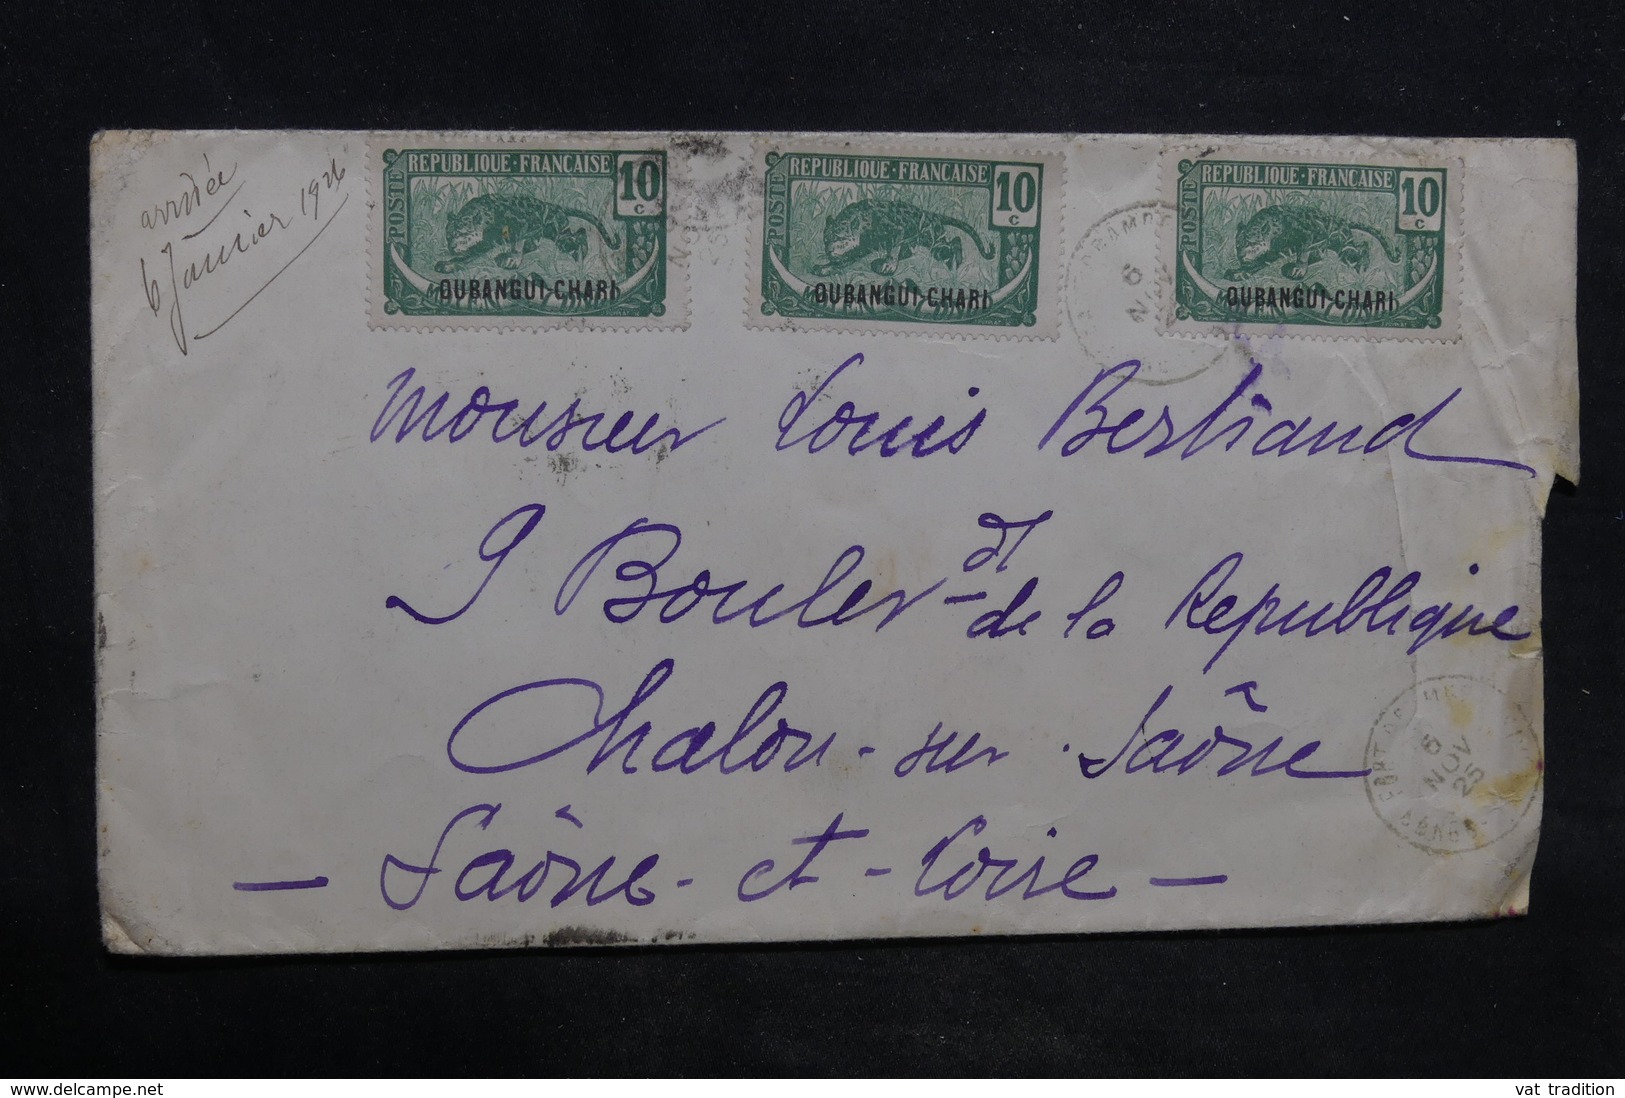 arrivée
6 Janvier 1926
REPUBLIQUE·FRANCAISE 10 c
POSTE
OUBANGUI-CHARI
REPUBLIQUE·FRANCAISE 10 c
POSTE
OUBANGUI-CHARI
REPUBLIQUE·FRANCAISE 10 c
POSTE
OUBANGUI-CHARI
6
NOV
Monsieur Louis Bertrand
9 Boulev-dt de la Republique
Chalon-sur-Saône
- Saône-et-Loire -
6
NOV
25
delcampe.net
vat tradition